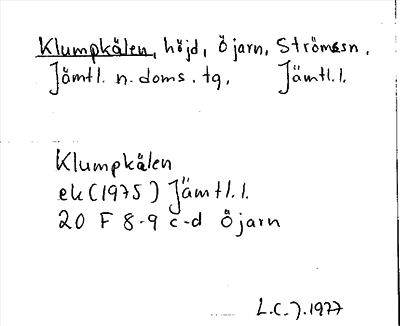 Klumpkälen, höjd, Öjarn, Ströms sn.
Jämtl. n. doms. tg, Jämtl. l.
Klumpkälen
ek (1975) Jämtl. l.
20 F 8-9 c-d Öjarn
L.C.J. 1977